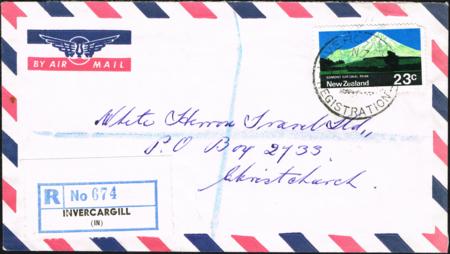 BY AIR MAIL
EGMONT NATIONAL PARK
New Zealand 23c
REGISTRATION
White Heron Travel Ltd,,
P.O Box 2733.
Christchurch.
R No 674
INVERCARGILL
(IN)